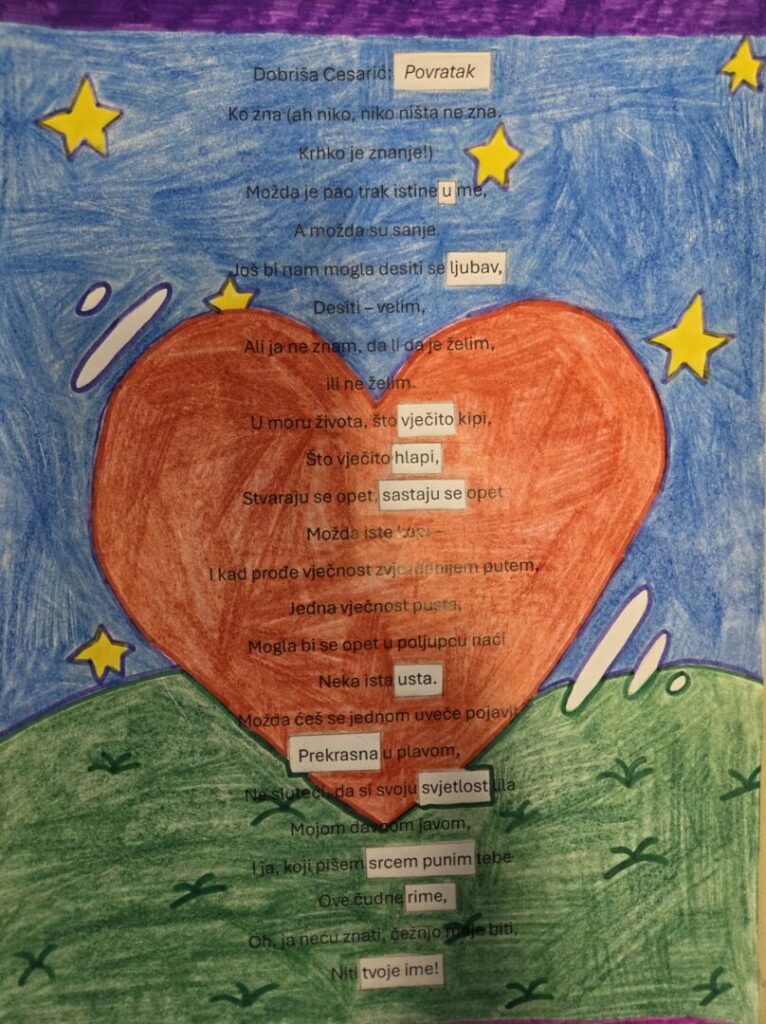 Dobriša Cesarić: Povratak
Ko zna (ah niko, niko ništa ne zna.
Krhko je znanje!)
Možda je pao trak istine u me,
A možda su sanje.
Još bi nam mogla desiti se ljubav,
Desiti – velim,
Ali ja ne znam, da li da je želim,
ili ne želim.
U moru života, što vječito kipi,
Što vječito hlapi,
Stvaraju se opet, sastaju se opet
Možda iste kapi –
I kad prođe vječnost zvjezdanijem putem,
Jedna vječnost pusta,
Mogla bi se opet u poljupcu naći
Neka ista usta.
Možda ćeš se jednom uveče pojavit
Prekrasna u plavom,
Ne sluteći, da si svoju svjetlost ula
Mojom davnom javom,
I ja, koji pišem srcem punim tebe
Ove čudne rime,
Oh, ja neću znati, čežnjo moje biti,
Niti tvoje ime!